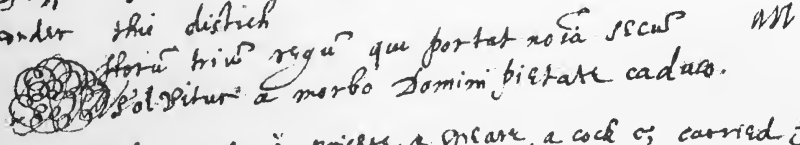 under this distich
Horū triū regū qui portat noīa secū
Solvitur a morbo Domini pietate caduco.
a cock & carried